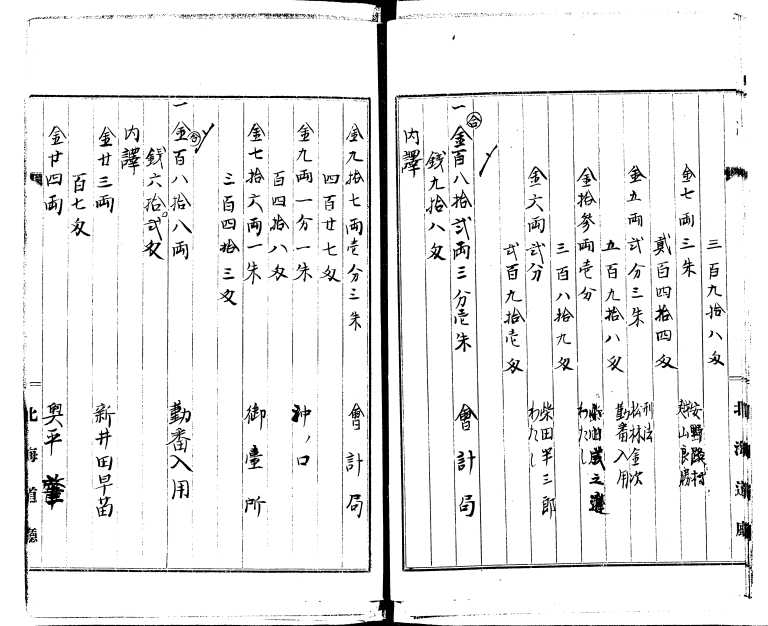 三百九拾八匁
金七両三朱
安野路村
貳百四拾四匁
金五両弐分三朱
刑法
松林金次
勤番入用
五百九拾八匁
金拾参両壱分
わたし
三百八拾九匁
金六両弐分
柴田半三郎
わたし
弐百九拾壱匁
一 合 金百八拾弐両三分壱朱
會計局
銭九拾八匁
内譯
北海道廳
金九拾七両壱分三朱
會計局
四百廿七匁
金九両一分一朱
沖ノ口
百四拾八匁
金七拾六両一朱
御臺所
三百四拾三匁
一 合 金百八拾八両
勤番入用
銭六拾弐匁
内譯
金廿三両
新井田早苗
百七匁
金廿四両
奥平肇
北海道廳